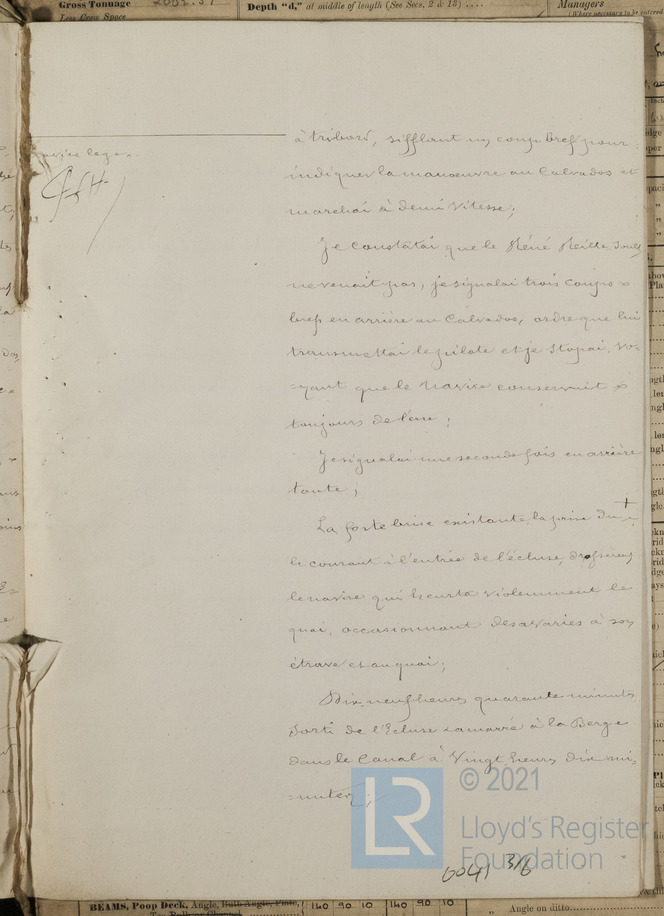 Gross Tonnage
Less Crew Space
Depth "d," at middle of length (See Secs. 2 & 13) ....
Managers
(Where necessary to be entered
à tribord, sifflant un coup bref pour
indiquer la manœuvre au Calvados et
marchai à demi vitesse;
Je constatai que le Réné
ne venait pas, je signalai trois coups x
brefs en arrière au Calvados, ordre que lui
transmettai le pilote et je stopai, vo-
=yant que le navire conservait x
toujours de l'erre;
Je signalai une seconde fois en arrière
toute;
La forte brise existante, la prise du +
le courant à l'entrée de l'écluse, drossèrent
le navire qui heurta violemment le
quai, occasionnant des avaries à son
étrave et au quai;
Dix neuf heures quarante minutes
Sorti de l'Ecluse amarré à la Berge
dans le Canal à Vingt heures dix mi-
=nutes;
LR © 2021
Lloyd's Register
Foundation
0041 3/6
BEAMS, Poop Deck, Angle, Bulb Angle, Plate,
140 90 10 140 90 10
" Angle on ditto